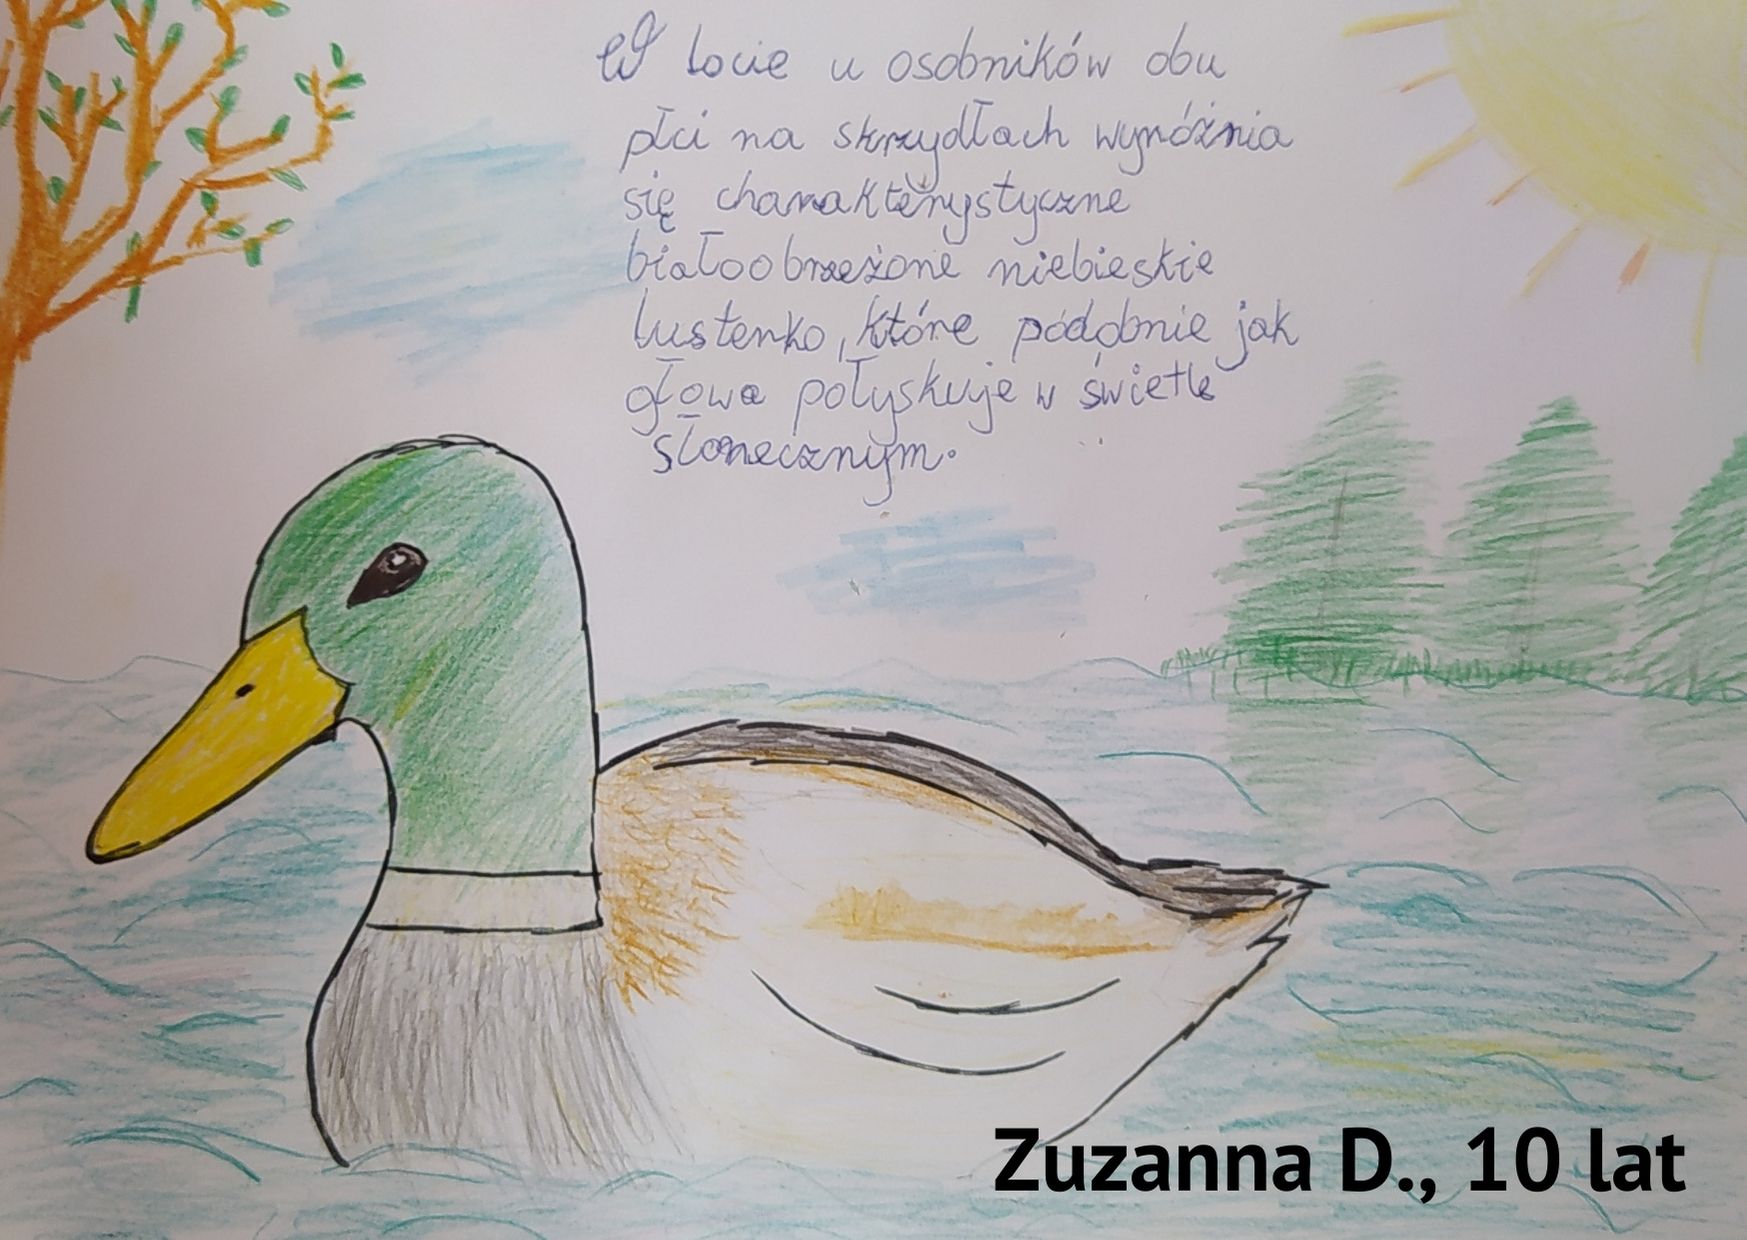 W locie u osobników obu
płci na skrzydłach wyróżnia
się charakterystyczne
białoobrzeżone niebieskie
lusterko, które podobnie jak
głowa połyskuje w świetle
słonecznym.
Zuzanna D., 10 lat